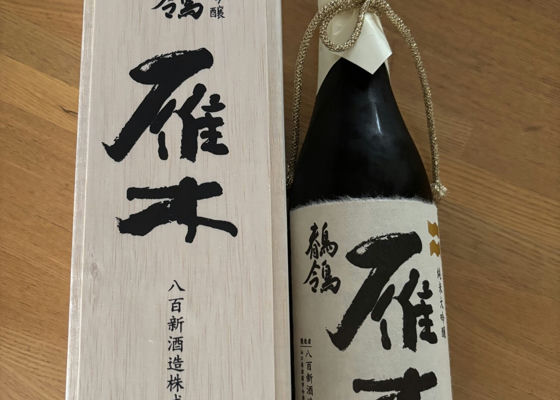 醸
鴒
雁木
八百新酒造株
純米大吟醸
雁木
鶺鴒
八百新酒